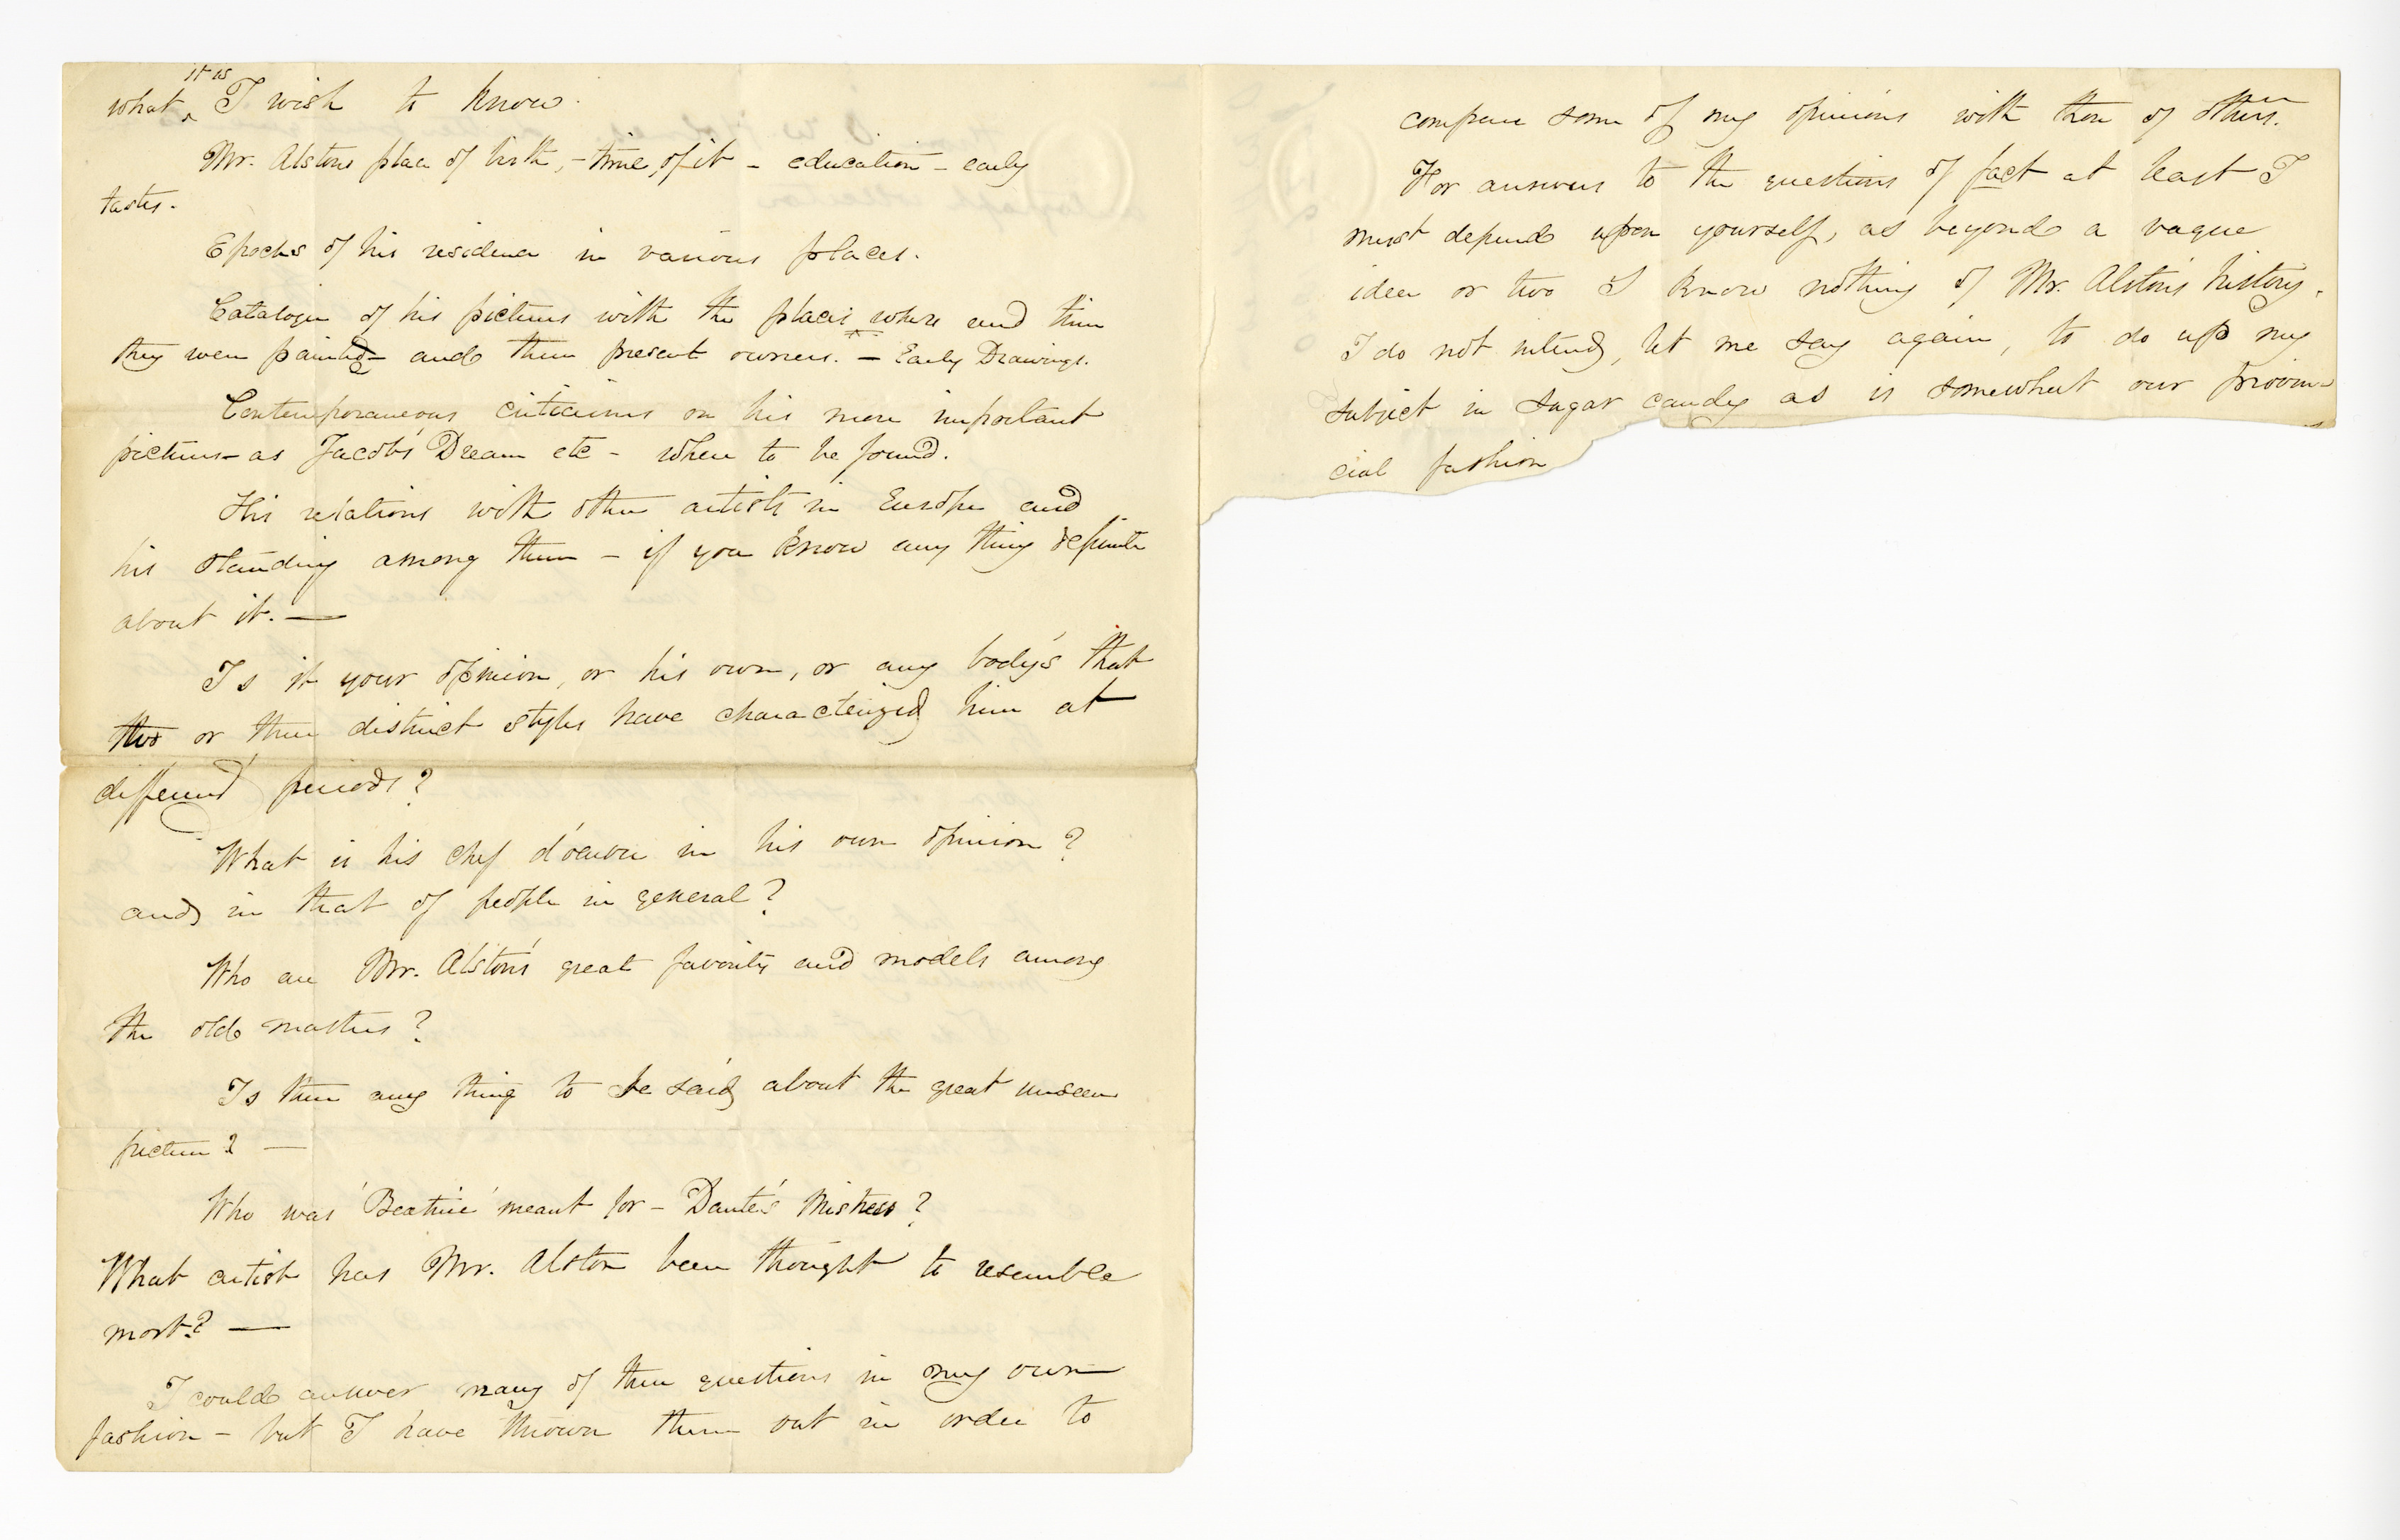 what ^it is^ I wish to know.
Mr. Alstons place of birth, - time, of it - education - early
tastes.
Epochs of his residence in various places.
Catalogue of his pictures with the places where and time
they were painted - and their present owners. - Early Drawings.
Contemporaneous criticisms on his more important
pictures - as Jacob's Dream etc - where to be found.
His relations with other artists in Europe and
his standing among them - if you know any thing definite
about it. —
Is it your opinion, or his own, or any body's that
two or three distinct styles have characterized him at
different periods?
What is his chef d'oeuvre in his own opinion?
and in that of people in general?
Who are Mr. Alston's great favorites and models among
the old masters?
Is there any thing to be said about the great unseen
picture? —
Who was 'Beatrice' meant for - Dante's Mistress?
What artist has Mr. Alston been thought to resemble
most? —
I could answer many of these questions in my own
fashion - but I have thrown them out in order to
compare some of my opinions with those of others.
For answers to the questions of fact at least I
must depend upon yourself, as beyond a vague
idea or two I know nothing of Mr. Alston's history.
I do not intend, let me say again, to do up my
subject in sugar candy as is somewhat our provin-
cial fashion